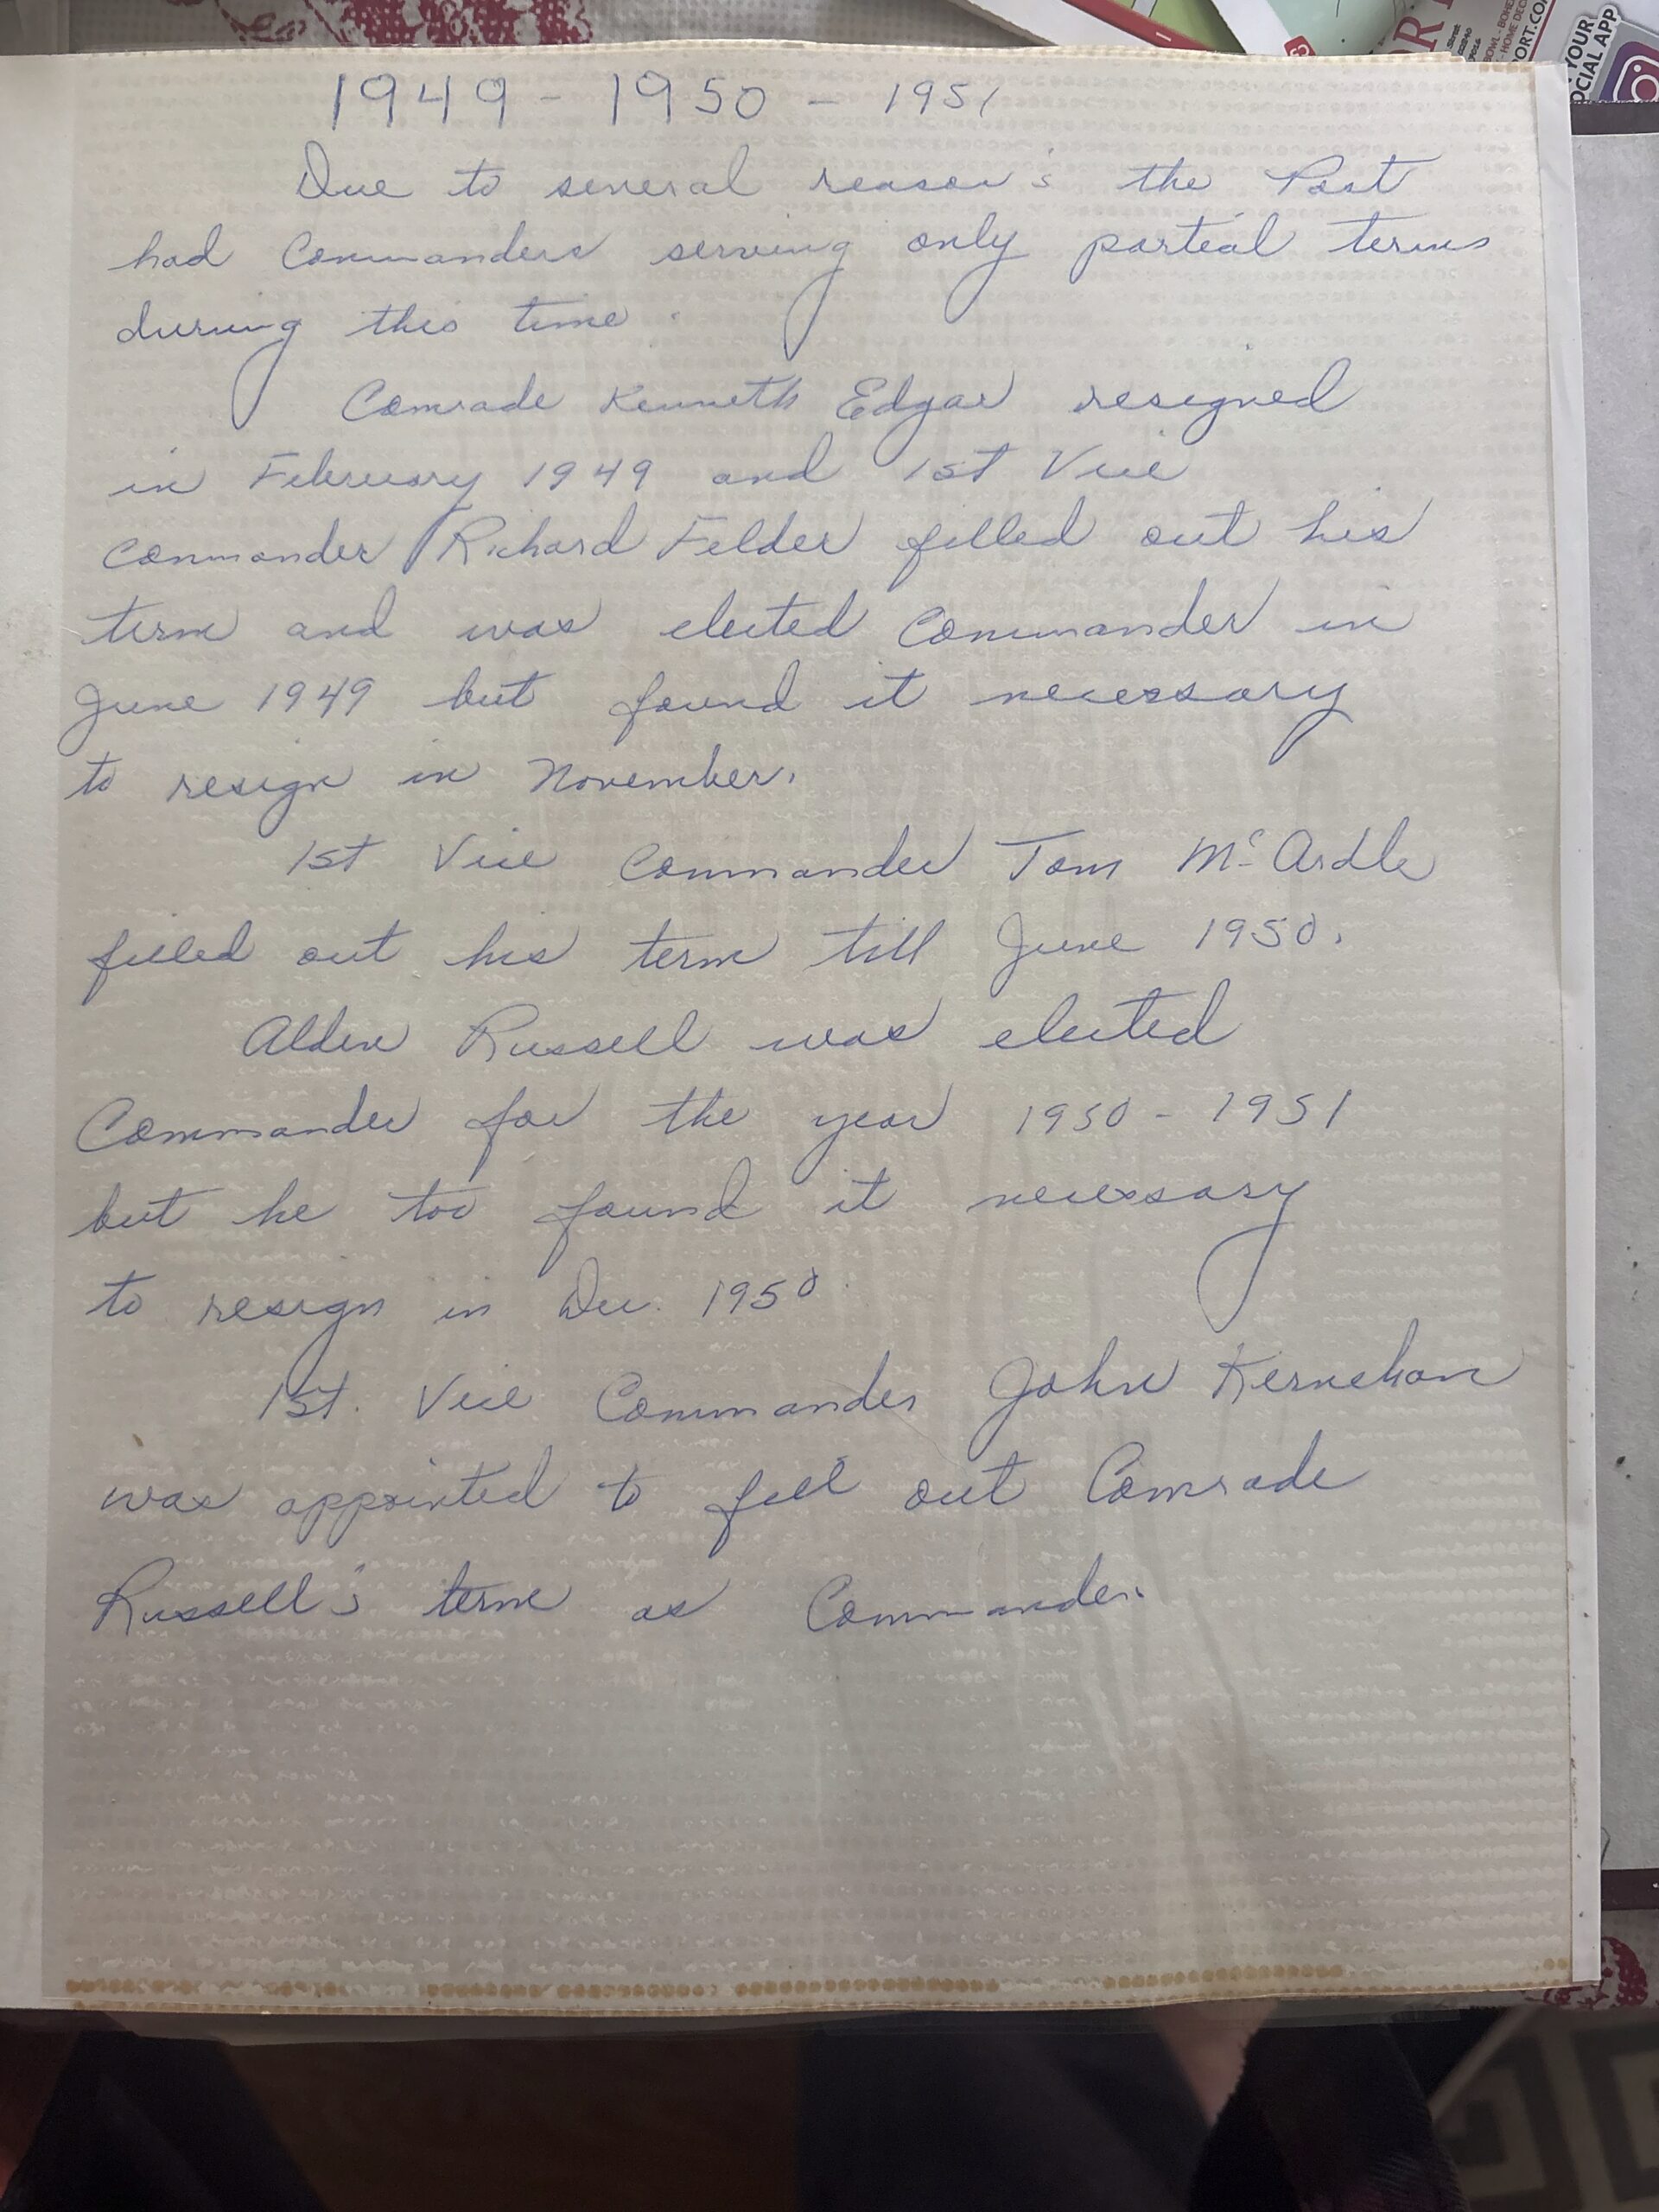 1949 - 1950 - 1951
Due to several reason's the Post
had Commanders serving only partial terms
during this time.
Comrade Kenneth Edgar resigned
in February 1949 and 1st Vice
Commander Richard Felder filled out his
term and was elected Commander in
June 1949 but found it necessary
to resign in November.
1st Vice Commander Tom McArdle
filled out his term till June 1950.
Alden Russell was elected
Commander for the year 1950 - 1951
but he too found it necessary
to resign in Dec. 1950.
1st. Vice Commander John Kernehan
was appointed to fill out Comrade
Russell's term as Commander.
YOUR
OCIAL APP
ORT.CO